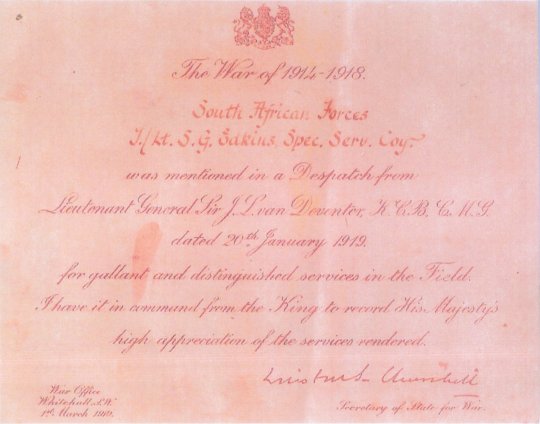 The War of 1914-1918.
South African Forces
T./Lt. S. G. Eakins, Spec. Serv. Coy.
was mentioned in a Despatch from
Lieutenant General Sir J. L. van Deventer, K.C.B. C.M.G.
dated 20th January 1919.
for gallant and distinguished services in the Field.
I have it in command from the King to record His Majesty's
high appreciation of the services rendered.
Winston S Churchill
War Office
Whitehall. S.W.
1st March 1919.
Secretary of State for War.